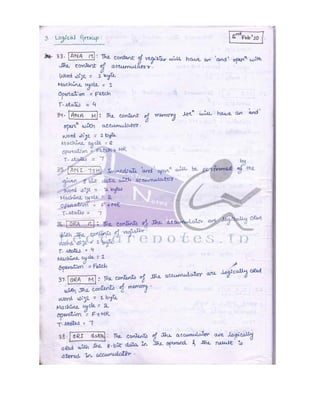 3. Logical Group:
2nd Feb '10
33. ANA M : The content of register will have an 'and' opern with
the content of accumulator.
Word size = 1 byte
Machine cycle = 1
Operation = Fetch
T-states = 4
34. ANA M : The content of memory will have an and
opern with accumulator
word size = 1 byte
Machine cycle = 2
operation = Fetch + MR
T-states = 7
Immediate and opern will be performed of the
given data with accumulator
Word size = 2 bytes
Machine cycle = 2
operation = F+MR
T-states = 7
The contents of the accumulator are logically ORed
with the contents of register
Word size = 1 byte
T-states = 4
Machine cycle = 1
Operation = Fetch
37. ORA M : The contents of the accumulator are logically ORed
with the contents of memory.
word size = 1 byte
Machine cycle = 2
operation = F+MR
T-states = 7
38. ORI : The contents of the accumulator are logically
ORed with the 8-bit data in the operand & the result is
stored in accumulator.